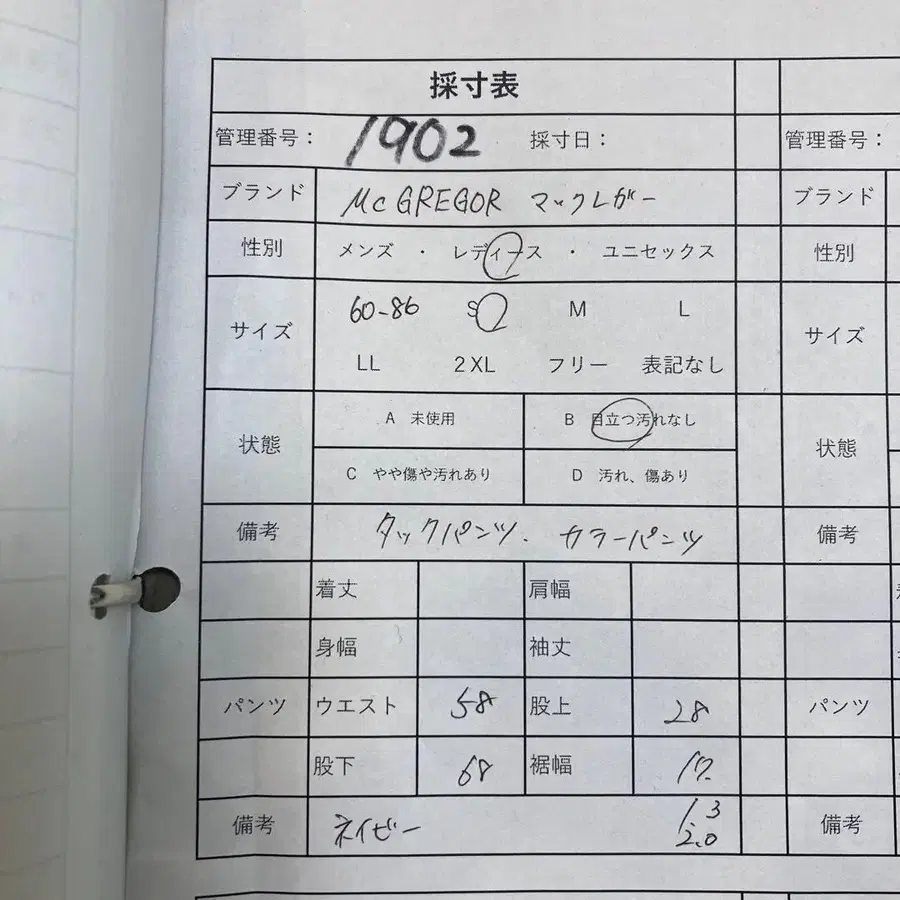 採寸表
管理番号： 1902 採寸日：
ブランド McGREGOR マックレガー
性別 メンズ ・ レディース ・ ユニセックス
サイズ 60-86 S M L
LL 2XL フリー 表記なし
状態 A 未使用 B 目立つ汚れなし
C やや傷や汚れあり D 汚れ、傷あり
備考 タックパンツ. カラーパンツ
着丈 肩幅
身幅 袖丈
パンツ ウエスト 58 股上 28
股下 68 裾幅 17.
備考 ネイビー 1.3
2.0
管理番号：
ブランド
性別
サイズ
状態
備考
パンツ
備考